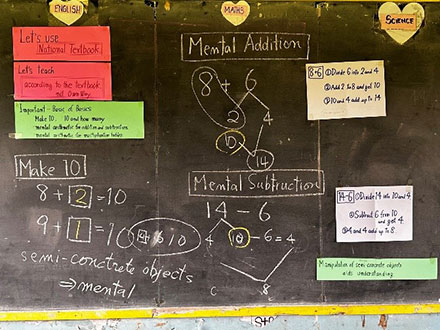 ENGLISH
MATHS
SCIENCE
Let's use
National Textbook!
Let's teach
according to the textbook
Important - Basic of Basics
Make 10, 10 and how many
mental arithmetic for addition and subtraction
mental arithmetic for multiplication tables
Make 10
8 + 2 = 10
9 + 1 = 1
semi-concrete objects
⇒ mental
Mental Addition
8 + 6
2
4
10
14
Mental Subtraction
14 - 6
4 10 - 6 = 4
8
8+6 ①Divide 6 into 2 and 4
②Add 2 to 8 and get 10
③10 and 4 add up to 14
14-6 ①Divide 14 into 10 and 4
②Subtract 6 from 10
and get 4.
③4 and 4 add up to 8
Manipulation of semi concrete objects
aids understanding